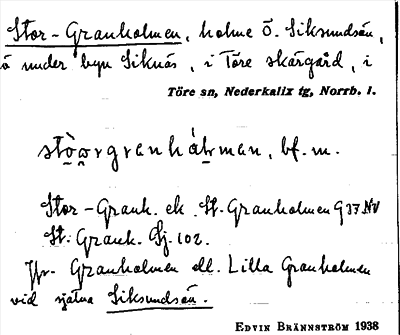 Stor-Granholmen, holme Ö. Siksundsön,
ö under byn Siknäs, i Töre skärgård, i
Töre sn, Nederkalix tg, Norrb. l.
bf. m.
Stor-Granh. ek. St. Granholmen 937 NV
St. Granh. Sj. 102.
Jfr. Granholmen ell. Lilla Granholmen
vid sjelva Siksundsön.
EDVIN BRÄNNSTRÖM 1938